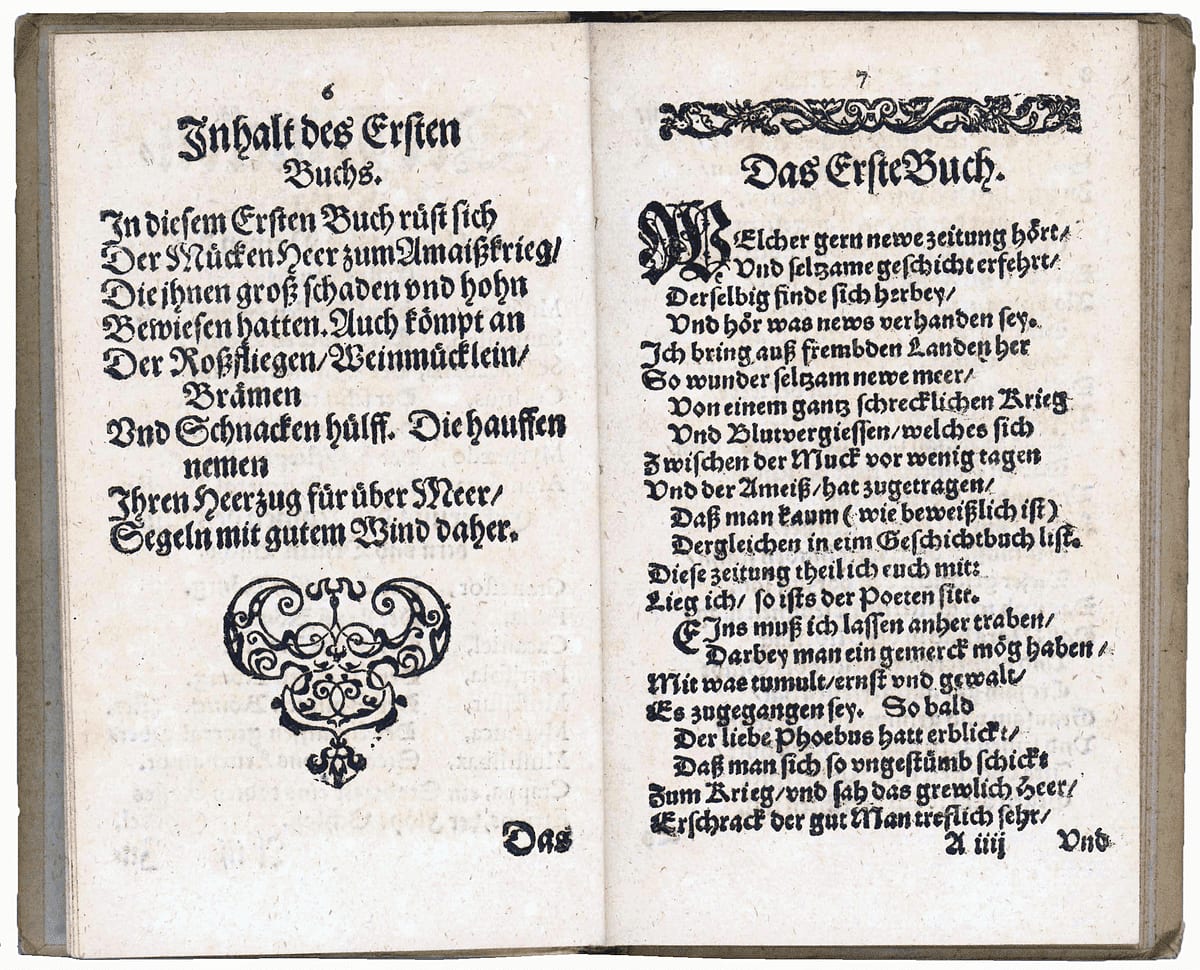 6
Inhalt des Ersten
Buchs.
In diesem Ersten Buch rüst sich
Der Mücken Heer zum Amaißkrieg/
Die jhnen groß schaden vnd hohn
Bewiesen hatten. Auch kömpt an
Der Roßfliegen/Weinmücklein/
Brämen
Vnd Schnacken hülff. Die hauffen
nemen
Ihren Heerzug für über Meer/
Segeln mit gutem Wind daher.
Das
7
Das Erste Buch.
WElcher gern newe zeitung hört/
Vnd seltzame geschicht erfehrt/
Derselbig finde sich herbey/
Vnd hör was news verhanden sey.
Ich bring auß frembden Landen her
So wunder seltzam newe meer/
Von einem gantz schrecklichen Krieg
Vnd Blutvergiessen/welches sich
Zwischen der Muck vor wenig tagen
Vnd der Ameiß/hat zugetragen/
Daß man kaum (wie beweißlich ist)
Dergleichen in eim Geschichtbuch list.
Diese zeitung theil ich euch mit:
Lieg ich/ so ists der Poeten sitt.
EIns muß ich lassen anher traben/
Darbey man ein gemerck mög haben/
Mit was tumult/ernst vnd gewalt/
Es zugegangen sey. So bald
Der liebe Phoebus hatt erblickt/
Daß man sich so vngestümb schickt
Zum Krieg/vnd sah das grewlich Heer/
Erschrack der gut Man treflich sehr/
A iiij Vnd